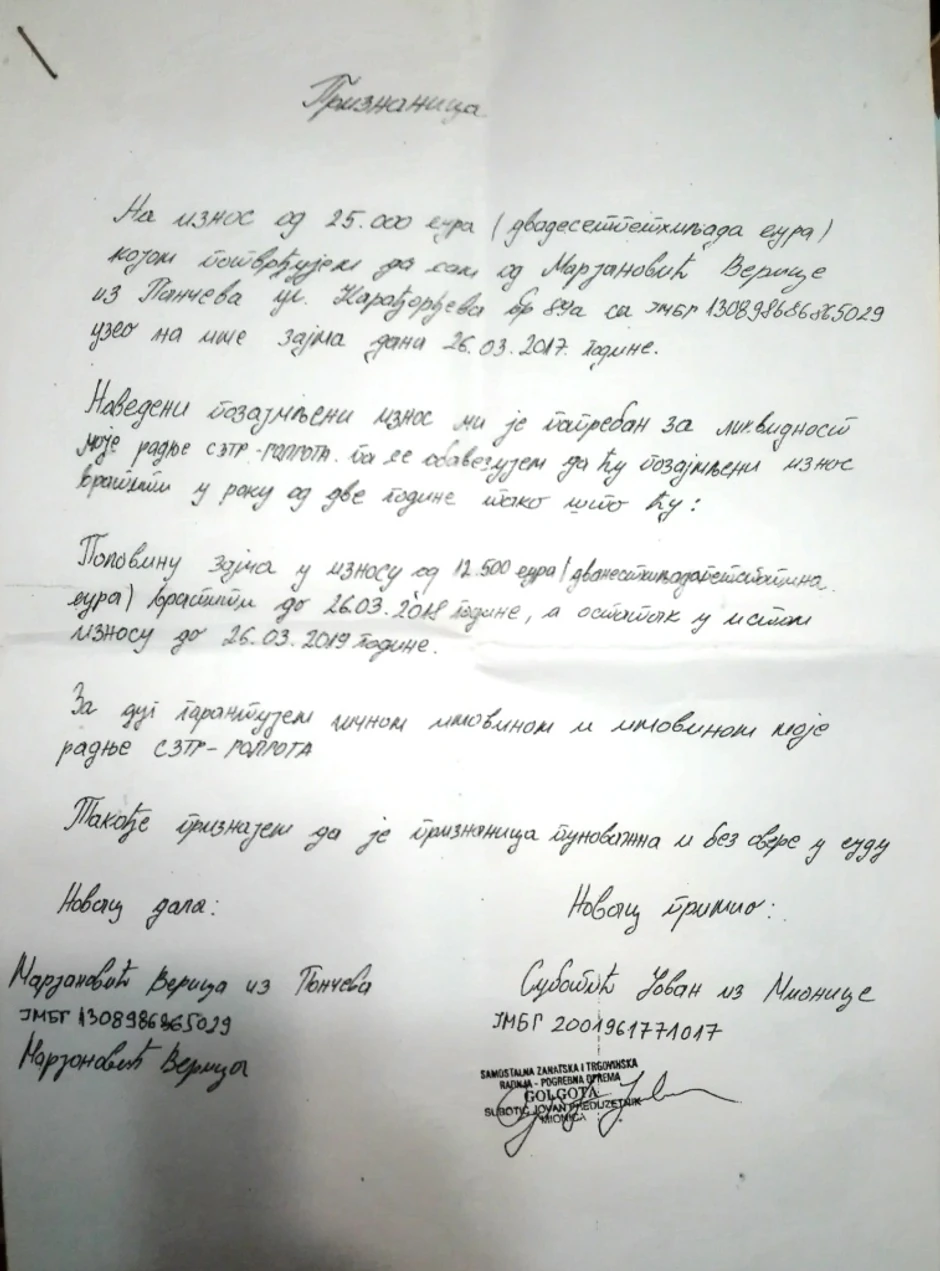 Признаница
На износ од 25.000 еура (двадесетпетхиљада еура)
којом потврђујем да сам од Марјановић Верице
из Панчева ул. Карађорђева бр 89а са ЈМБГ
узео на име зајма дана 26.03.2017. године.
Наведени позајмљени износ ми је потребан за ликвидност
моје радње СЗТР-ГОЛГОТА. па се обавезујем да ћу позајмљени износ
вратити у року од две године тако што ћу:
Половину зајма у износу од 12.500 еура (дванестхиљадапетстотина
еура) вратити до 26.03.2018 године, а остатак у истом
износу до 26.03.2019 године.
За дуг гарантујем личном имовином и имовином моје
радње СЗТР-ГОЛГОТА
Такође признајем да је признаница пуноважна и без овере у суду
Новац дала:
Новац примио:
Марјановић Верица из Панчева
ЈМБГ
Марјановић Верица
Суботић Јован из Мионице
ЈМБГ 2001961771017
SAMOSTALNA ZANATSKA I TRGOVINSKA
RADNJA - POGREBNA OPREMA
GOLGOTA
SUBOTIĆ JOVAN PREDUZETNIK
MIONICA